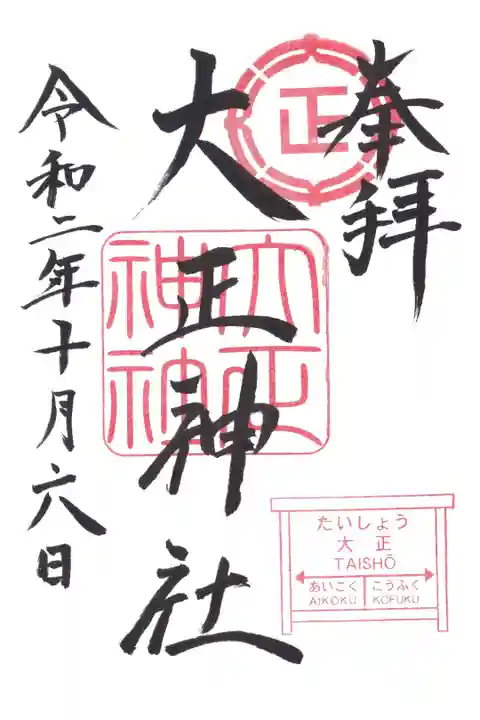 奉拝
正
大正神社
大正
神社
令和二年十月六日
たいしょう
大正
TAISHŌ
あいこく こうふく
AIKOKU KOFUKU